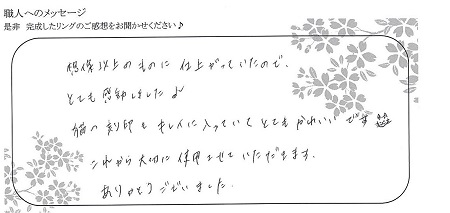 職人へのメッセージ
是非 完成したリングのご感想をお聞かせください♪
想像以上のものに仕上がっていたので、
とても感動しました♪
猫の刻印もキレイに入っていてとてもかわいいです
これから大切に使用させていただきます。
ありがとうございました。